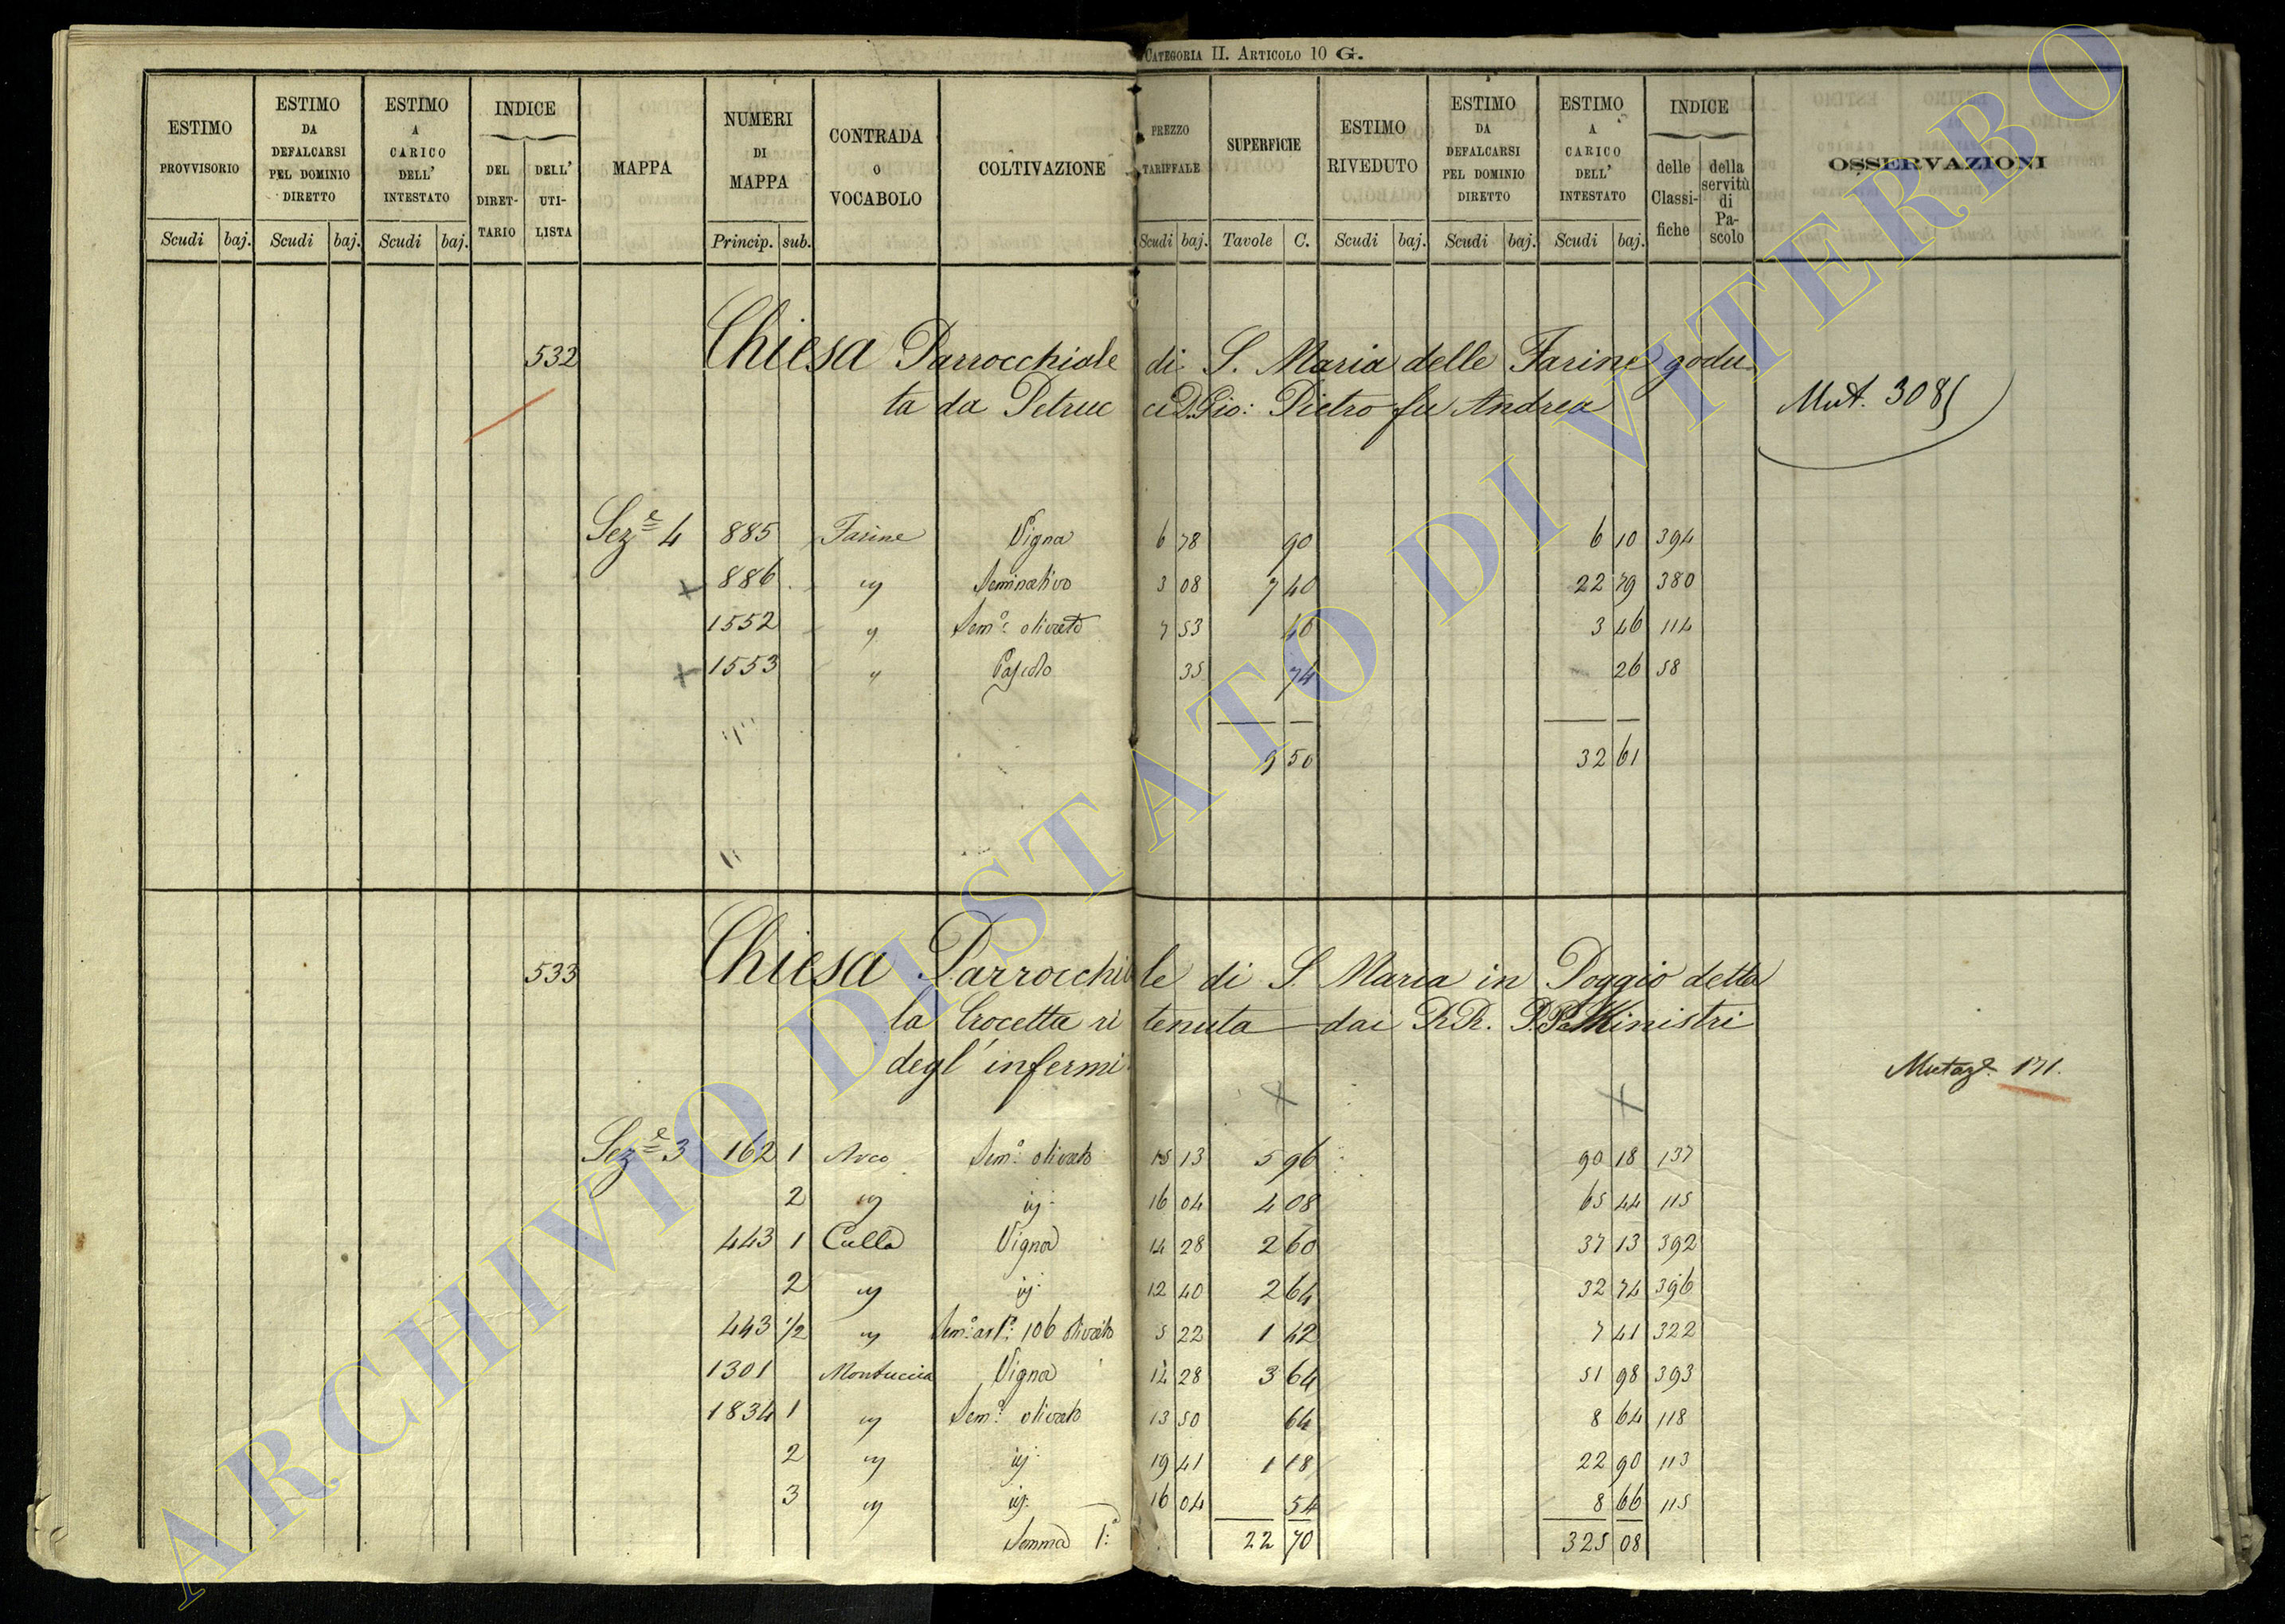 CATEGORIA II. ARTICOLO 10 G.
ESTIMO PROVVISORIO
ESTIMO DA DEFALCARSI PEL DOMINIO DIRETTO
ESTIMO A CARICO DELL' INTESTATO
INDICE
DEL DIRETTARIO
DELL' UTILISTA
MAPPA
NUMERI DI MAPPA
CONTRADA o VOCABOLO
COLTIVAZIONE
PREZZO TARIFFALE
SUPERFICIE
ESTIMO RIVEDUTO
ESTIMO DA DEFALCARSI PEL DOMINIO DIRETTO
ESTIMO A CARICO DELL' INTESTATO
INDICE
delle Classifiche
della servitù di Pascolo
OSSERVAZIONI
Scudi baj. Scudi baj. Scudi baj. Princip. sub. Scudi baj. Tavole C. Scudi baj. Scudi baj. Scudi baj.
532 Chiesa Parrocchiale di S. Maria delle Farine godu
ta da Petruc ci D. Gio: Pietro fu Andrea Mut. 308
Sez.e 4 885 Farine Vigna 6 78 90 6 10 394
+ 886 id Seminativo 3 08 7 40 22 79 380
1552 " Sem.o olivato 7 53 46 3 46 114
+ 1553 " Pascolo 35 74 26 58
9 50 32 61
533 Chiesa Parrocchi le di S. Maria in Poggio detta
la Crocetta ri tenuta dai RR. P.P. Ministri
degl' infermi
Mutaz.e 171.
Sez.e 3 162 1 Arco Sem.o olivato 15 13 5 96 90 18 137
2 id id. 16 04 4 08 65 44 115
443 1 Culla Vigna 14 28 2 60 37 13 392
2 id id. 12 40 2 64 32 74 396
443 1/2 id Sem.o as.to 106 olivato 5 22 1 42 7 41 322
1301 Montuccia Vigna 14 28 3 64 51 98 393
1834 1 id Sem.o olivato 13 50 64 8 64 118
2 id id. 19 41 1 18 22 90 113
3 id id. 16 04 54 8 66 115
Somma 1.a 22 70 325 08
ARCHIVIO DI STATO DI VITERBO